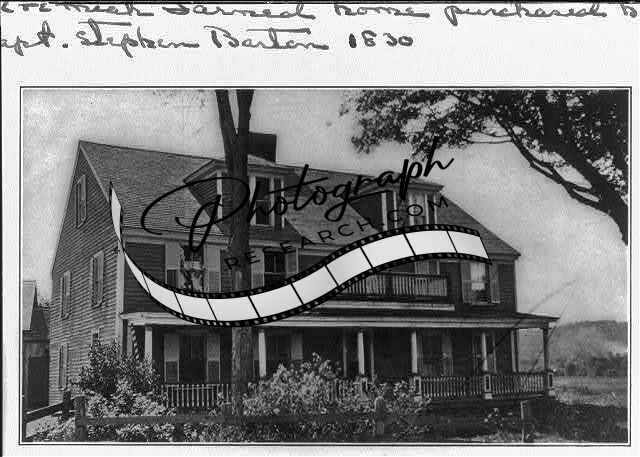 Learned home purchased b
apt. Stephen Barton 1830
Photograph
RESEARCH.COM